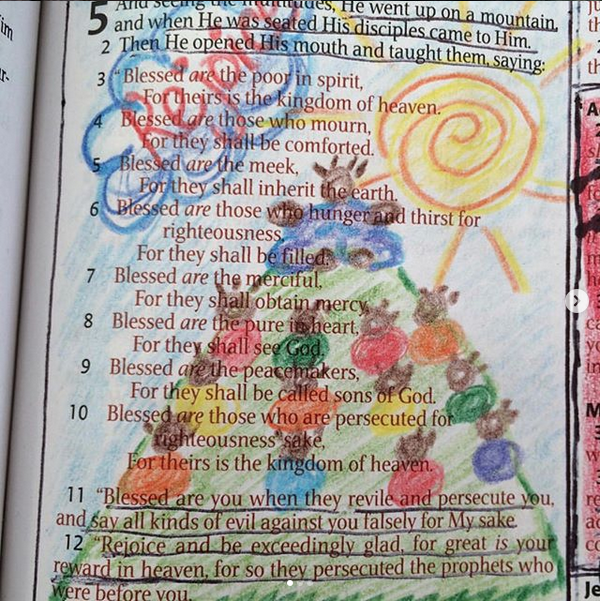 5 And seeing the multitudes, He went up on a mountain,
and when He was seated His disciples came to Him.
2 Then He opened His mouth and taught them, saying:
3 “Blessed are the poor in spirit,
For theirs is the kingdom of heaven.
4 Blessed are those who mourn,
For they shall be comforted.
5 Blessed are the meek,
For they shall inherit the earth.
6 Blessed are those who hunger and thirst for
righteousness,
For they shall be filled.
7 Blessed are the merciful,
For they shall obtain mercy.
8 Blessed are the pure in heart,
For they shall see God.
9 Blessed are the peacemakers,
For they shall be called sons of God.
10 Blessed are those who are persecuted for
righteousness’ sake,
For theirs is the kingdom of heaven.
11 “Blessed are you when they revile and persecute you,
and say all kinds of evil against you falsely for My sake.
12 “Rejoice and be exceedingly glad, for great is your
reward in heaven, for so they persecuted the prophets who
were before you.